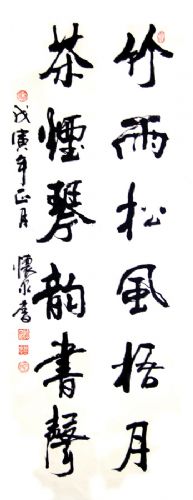 竹雨松風梧月
茶煙琴韵書聲
戊寅年正月
懷永書